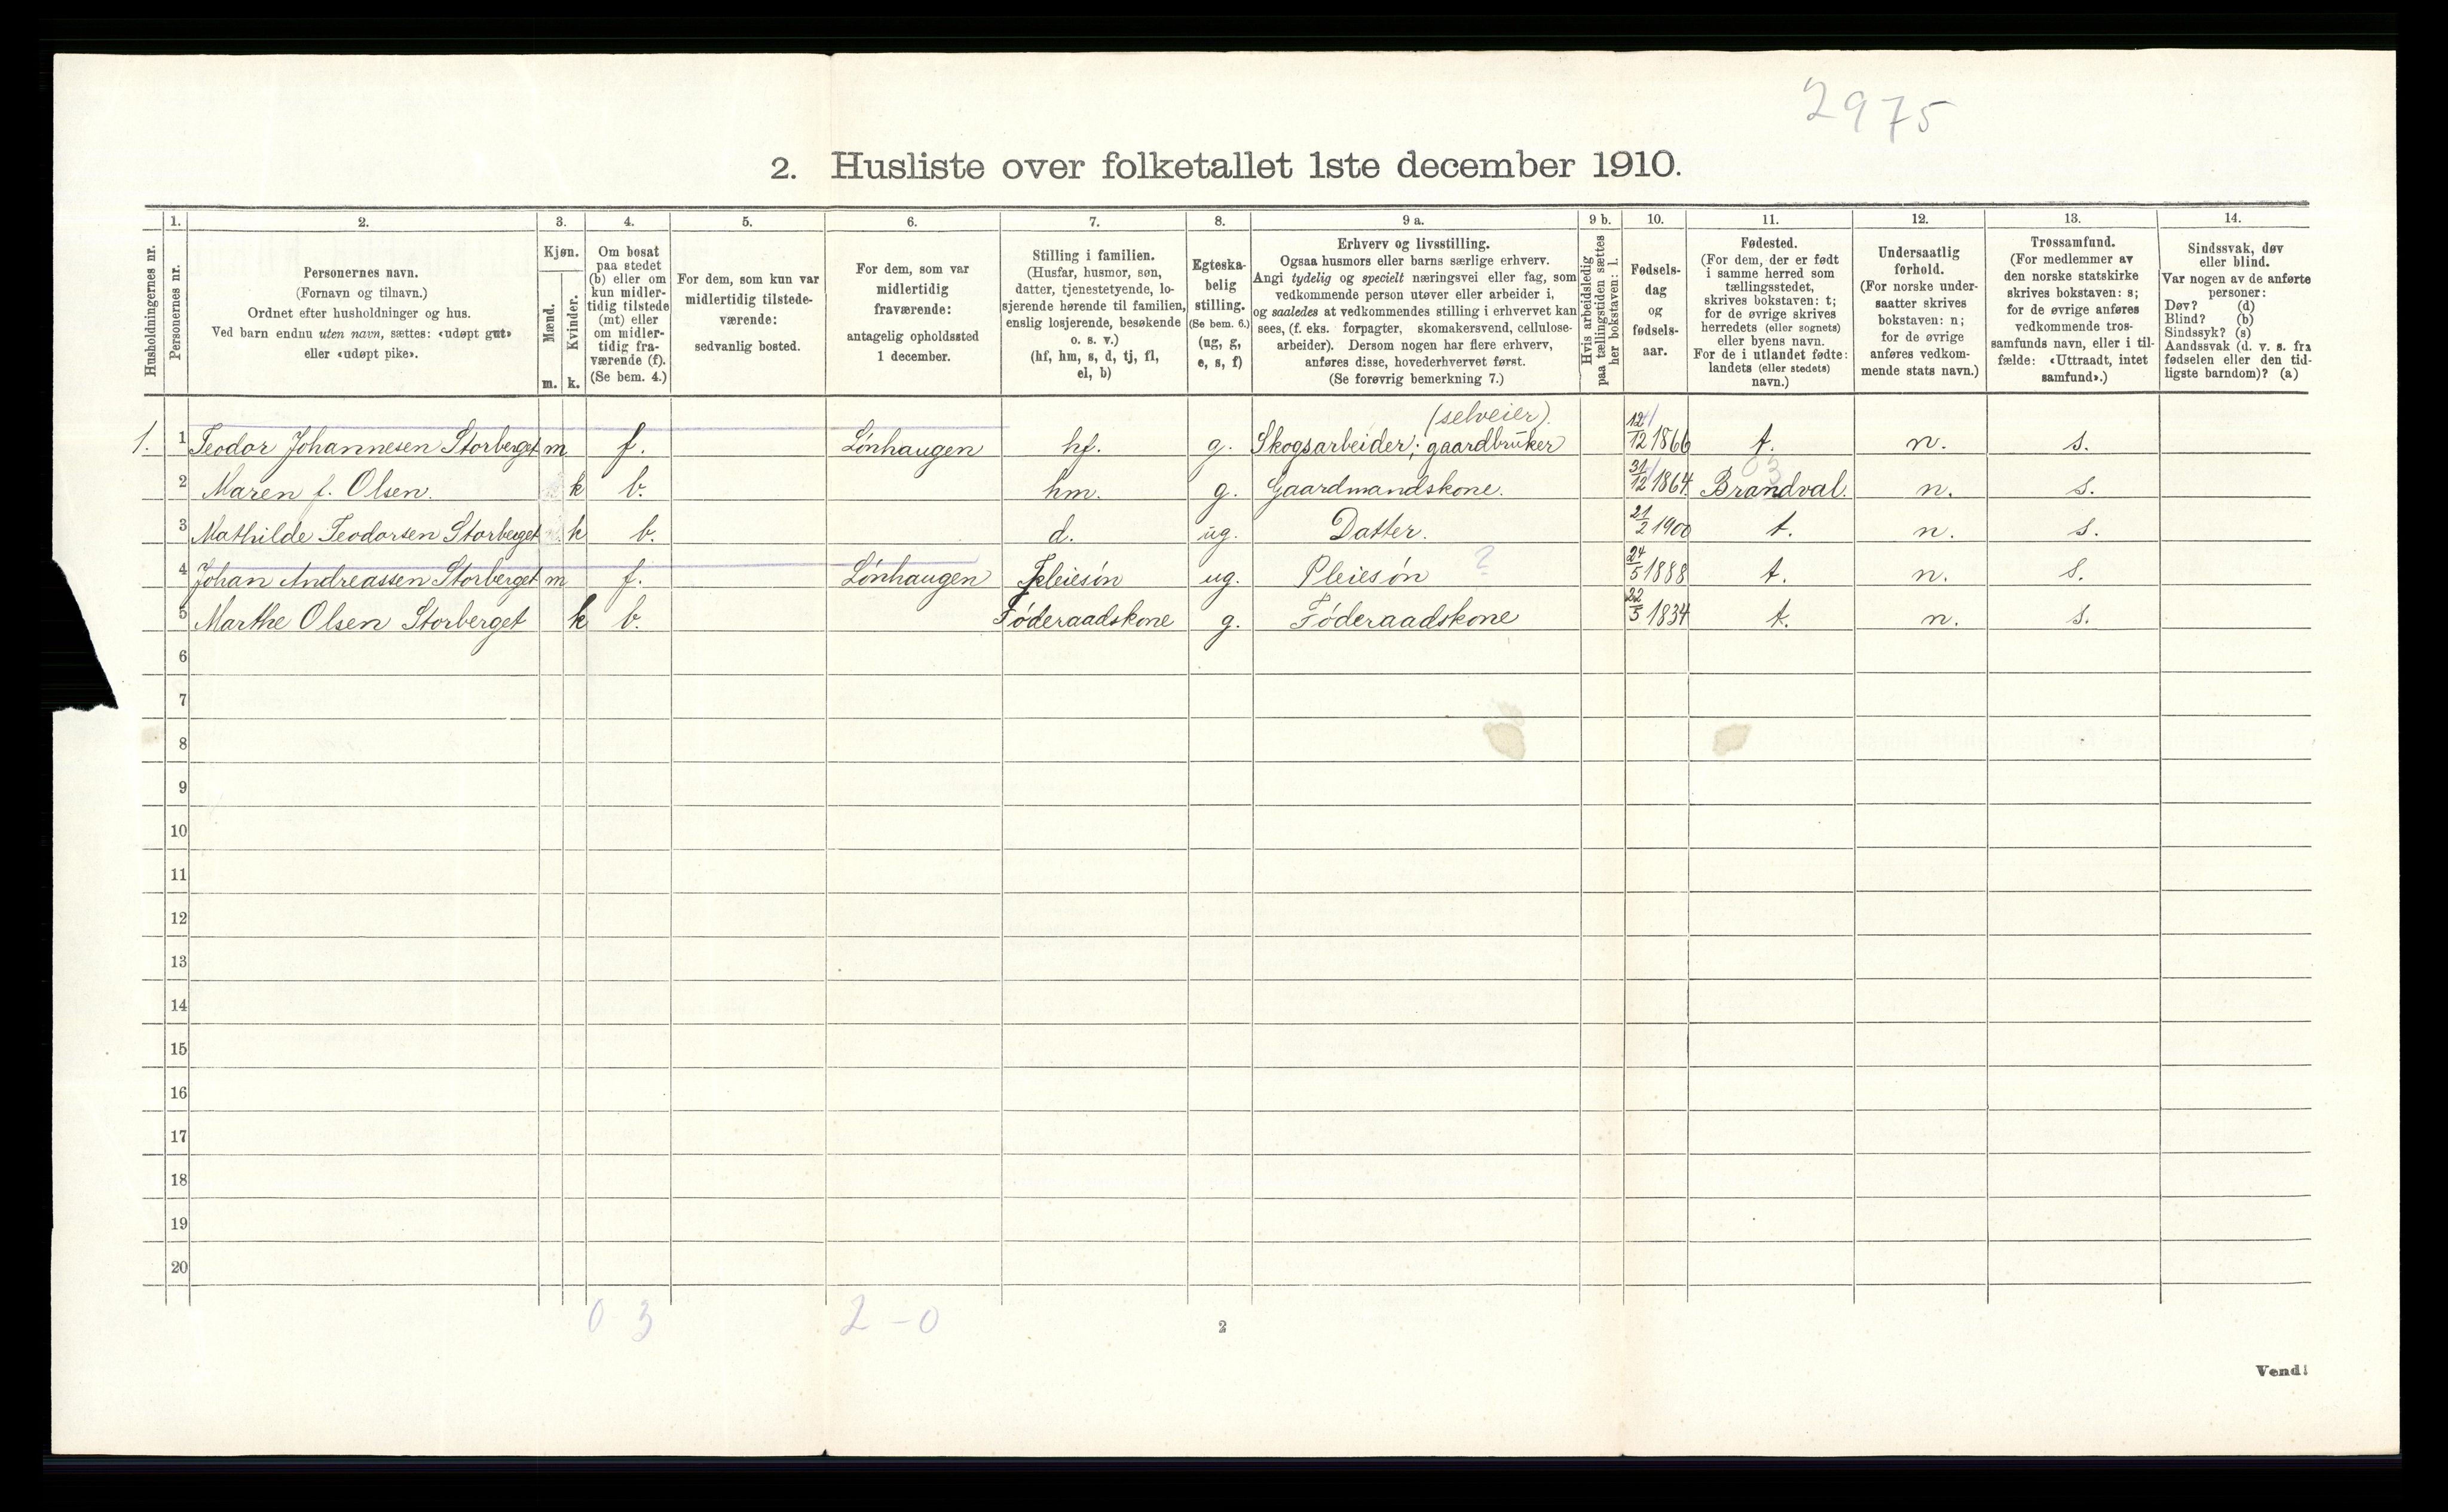 2975
2. Husliste over folketallet 1ste december 1910.
Husholdningernes nr.
1.
Personernes nr.
2.
Personernes navn.
(Fornavn og tilnavn.)
Ordnet efter husholdninger og hus.
Ved barn endnu uten navn, sættes: «udøpt gut»
eller «udøpt pike».
3.
Kjøn.
Mænd.
Kvinder.
m. k.
4.
Om bosat
paa stedet
(b) eller om
kun midler-
tidig tilstede
(mt) eller
om midler-
tidig fra-
værende (f).
(Se bem. 4.)
5.
For dem, som kun var
midlertidig tilstede-
værende:
sedvanlig bosted.
6.
For dem, som var
midlertidig
fraværende:
antagelig opholdssted
1 december.
7.
Stilling i familien.
(Husfar, husmor, søn,
datter, tjenestetyende, lo-
sjerende hørende til familien,
enslig losjerende, besøkende
o. s. v.)
(hf, hm, s, d, tj, fl,
el, b)
8.
Egteska-
belig
stilling.
(Se bem. 6.)
(ug, g,
e, s, f)
9 a.
Erhverv og livsstilling.
Ogsaa husmors eller barns særlige erhverv.
Angi tydelig og specielt næringsvei eller fag, som
vedkommende person utøver eller arbeider i,
og saaledes at vedkommendes stilling i erhvervet kan
sees, (f. eks. forpagter, skomakersvend, cellulose-
arbeider). Dersom nogen har flere erhverv,
anføres disse, hovederhvervet først.
(Se forøvrig bemerkning 7.)
9 b.
Hvis arbeidsledig
paa tællingstiden sættes
her bokstaven: l.
10.
Fødsels-
dag
og
fødsels-
aar.
11.
Fødested.
(For dem, der er født
i samme herred som
tællingsstedet,
skrives bokstaven: t;
for de øvrige skrives
herredets (eller sognets)
eller byens navn.
For de i utlandet fødte:
landets (eller stedets)
navn.)
12.
Undersaatlig
forhold.
(For norske under-
saatter skrives
bokstaven: n;
for de øvrige
anføres vedkom-
mende stats navn.)
13.
Trossamfund.
(For medlemmer av
den norske statskirke
skrives bokstaven: s;
for de øvrige anføres
vedkommende tros-
samfunds navn, eller i til-
fælde: «Uttraadt, intet
samfund».)
14.
Sindssvak, døv
eller blind.
Var nogen av de anførte
personer:
Døv? (d)
Blind? (b)
Sindssyk? (s)
Aandssvak (d. v. s. fra
fødselen eller den tid-
ligste barndom)? (a)
(selveier).
1. 1 Teodor Johannesen Storberget m f. Lønhaugen hf. g. Skogsarbeider; gaardbruker 12/12 1866 t. n. s.
2 Maren f. Olsen. k b. hm. g. Gaardmandskone. 31/12 1864 Brandval. n. s.
3 Mathilde Teodorsen Storberget k b. d. ug. Datter. 21/2 1900 t. n. s.
4 Johan Andreassen Storberget m f. Lønhaugen Pleiesøn ug. Pleiesøn ? 24/5 1888 t. n. s.
5 Marthe Olsen Storberget k b. Føderaadskone g. Føderaadskone 22/5 1834 t. n. s.
6
7
8
9
10
11
12
13
14
15
16
17
18
19
20
0 3 2 - 0
2
Vend!